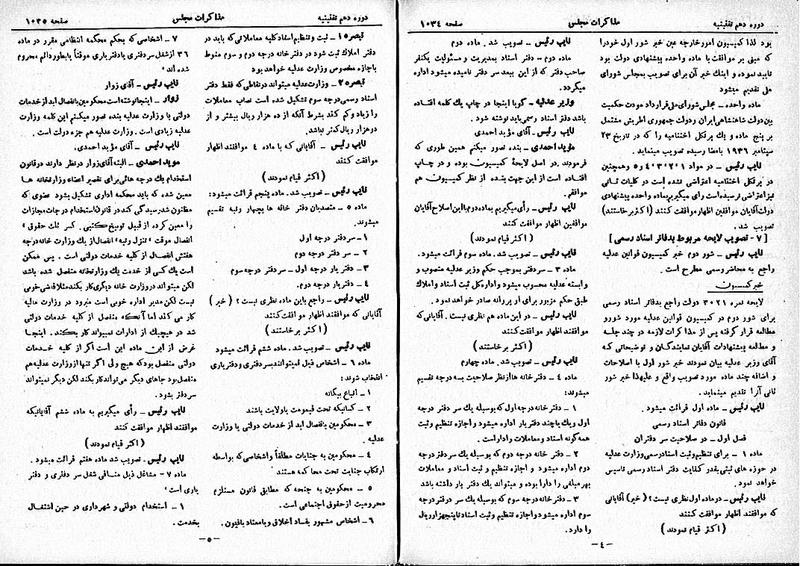 دوره دهم تقنینیه مذاکرات مجلس صفحه ۱۰۳۴
بود لذا کمیسیون امور خارجه عین خبر شور اول خود را
که مبنی بر موافقت با ماده واحده پیشنهادی دولت بود
تایید نموده و اینک خبر آن برای تصویب بمجلس شورای
ملی تقدیم میشود
ماده واحده - مجلس شورای ملی قرارداد مودت حکمیت
بین دولت شاهنشاهی ایران و دولت جمهوری اطریش مشتمل
بر پنج ماده و یک پرتکل اختتامیه را که در تاریخ ۲۳
سپتامبر ۱۹۳۶ بامضا رسیده تصویب مینماید.
نایب رئیس - در مواد ۱ و ۲ و ۳ و ۴ و ۵ و همچنین
در پرتکل اختتامیه اعتراضی نشده است در کلیات ثانی
نیز اعتراضی نرسیده است رأی میگیریم بماده واحده پیشنهادی
دولت آقایان موافقین اظهار موافقت کنند (اکثر برخاستند)
تصویب شد.
[۷ - تصویب لایحه مربوط بدفاتر اسناد رسمی]
نایب رئیس - شور دوم خبر کمیسیون قوانین عدلیه
راجع به محاضر رسمی مطرح است
خبر کمیسیون
لایحه نمره ۳۰۲۱ دولت راجع بدفاتر اسناد رسمی
برای شور دوم در کمیسیون قوانین عدلیه مورد شور و
مطالعه قرار گرفته پس از مذاکرات لازمه در چند جلسه
و مطالعه پیشنهادات آقایان نمایندگان و توضیحاتی که
آقای وزیر عدلیه بیان نمودند خبر شور اول با اصلاحات
و اضافه چند ماده مورد تصویب واقع و علیهذا خبر شور
ثانی آنرا تقدیم مینماید.
نایب رئیس - ماده اول قرائت میشود.
قانون دفاتر اسناد رسمی
فصل اول - در صلاحیت سر دفتران
ماده ۱ - برای تنظیم و ثبت اسناد رسمی وزارت عدلیه
در حوزه های ثبتی بقدر کفایت دفتر اسناد رسمی تاسیس
خواهد نمود.
نایب رئیس - در ماده اول نظری نیست؟ (خیر) آقایانی
که موافقند اظهار موافقت کنند
(اکثر قیام نمودند)
نایب رئیس - تصویب شد. ماده دوم
ماده دوم - دفتر اسناد بمدیریت و مسئولیت یکنفر
صاحب دفتر که از این ببعد سر دفتر نامیده میشود اداره
میگردد.
وزیر عدلیه - گویا اینجا در چاپ یک کلمه افتاده
باشد دفتر اسناد رسمی باید نوشته شود.
نایب رئیس - آقای مؤید احمدی
مؤید احمدی - بنده تصور میکنم همین طوری که
فرمودند در اصل لایحه کمیسیون بوده و در چاپ
افتاده است از این جهت بنده از نظر کمیسیون هم
موافقم.
نایب رئیس - رأی میگیریم بماده دوم با این اصلاح آقایان
موافقین اظهار موافقت کنند
(اکثر قیام نمودند)
نایب رئیس - تصویب شد. ماده سوم قرائت میشود.
ماده ۳ - سردفتر بموجب حکم وزیر عدلیه منصوب و
وابسته عدلیه محسوب میشود و اداره کل ثبت اسناد و املاک
طبق حکم مزبور برای او پروانه صادر خواهد نمود.
نایب رئیس - در این ماده هم نظری نیست. آقایانی که
موافقند اظهار موافقت کنند
(اکثر برخاستند)
نایب رئیس - تصویب شد. ماده چهارم
ماده ۴ - دفتر خانه ها از نظر صلاحیت بسه درجه تقسیم
میشوند:
۱ - دفتر خانه درجه اول که بوسیله یک سر دفتر درجه
اول و یک یا چند دفتر یار اداره میشود و اجازه تنظیم و ثبت
همه گونه اسناد و معاملات را دارا است.
۲ - دفتر خانه درجه دوم که بوسیله یک سردفتر درجه
دوم اداره میشود و اجازه تنظیم و ثبت اسناد و معاملات
بهر مبلغی را دارا بوده و میتواند یک دفتر یار داشته باشد
۳ - دفتر خانه درجه سوم که بوسیله یک سر دفتر درجه
سوم اداره میشود و اجازه تنظیم و ثبت اسناد تا پنجهزار ریال
را دارد.
- ٤ -
دوره دهم تقنینیه مذاکرات مجلس صفحه ۱۰۳۵
تبصره ۱ - ثبت و تنظیم اسناد کلیه معاملاتی که باید در
دفتر املاک ثبت شود در دفتر خانه درجه دوم و سوم منوط
باجازه مخصوص وزارت عدلیه خواهد بود
تبصره ۲ - وزارت عدلیه میتواند در نقاطی که فقط دفتر
اسناد رسمی درجه سوم تشکیل شده است نصاب معاملات
را زیاد و کم کند بشرط آنکه از ده هزار ریال بیشتر و از
دو هزار ریال کمتر نباشد.
نایب رئیس - آقایانی که با ماده ۴ موافقند اظهار
موافقت کنند
(اکثر قیام نمودند)
نایب رئیس - تصویب شد. ماده پنجم قرائت میشود:
ماده ۵ - متصدیان دفتر خانه ها بچهار رتبه تقسیم
میشوند.
۱ - سر دفتر درجه اول
۲ - سر دفتر درجه دوم
۳ - دفتر یار درجه اول - سر دفتر درجه سوم
۴ - دفتر یار درجه دوم.
نایب رئیس - راجع باین ماده نظری نیست؟ (خیر)
آقایانی که موافقند اظهار موافقت کنند
(اکثر برخاستند)
نایب رئیس - تصویب شد. ماده ششم قرائت میشود
ماده ۶ - اشخاص ذیل نمیتوانند سر دفتری و دفتر یاری
انتخاب شوند:
۱ - اتباع بیگانه
۲ - کسانیکه تحت قیمومت یا ولایت باشند
۳ - محکومین بانفصال ابد از خدمات دولتی یا وزارت
عدلیه.
۴ - محکومین به جنایات مطلقاً و اشخاصی که بواسطه
ارتکاب جنایت تحت محاکمه هستند
۵ - محکومین به جنحه که مطابق قانون مستلزم
محرومیت از حقوق اجتماعی است.
۶ - اشخاص مشهور بفساد اخلاق و یا معتاد بافیون.
۷ - اشخاصی که بحکم محکمه انتظامی مقرر در ماده
۳۶ از شغل سر دفتری یا دفتر یاری موقتاً یا بطور دائم محروم
شده اند
نایب رئیس - آقای زوار
زوار - اینجا نوشته است محکومین بانفصال ابد از خدمات
دولتی یا وزارت عدلیه بنده تصور میکنم این کلمه وزارت
عدلیه زیادی است. وزارت عدلیه هم جزء دولت است.
نایب رئیس - آقای مؤید احمدی.
مؤید احمدی - البته آقای زوار در نظر دارند در قانون
استخدام یک درجه هائی برای تقصیر اعضاء وزارتخانه ها
معین شده که باید محکمه اداری تشکیل بشود عضوی که
مظنون شد رسیدگی کند در قانون استخدام درجات مجازات
را معین کرده از قبیل توبیخ کتبی. کسر ثلث حقوق
انفصال موقت، تنزل رتبه، انفصال از یک وزارت خانه درجه
هفتش انفصال از کلیه خدمات دولتی است. پس ممکن
است یک کسی از خدمت یک وزارتخانه منفصل شده باشد
لکن میتواند در وزارت خانه دیگری کار بکند مثلا قاضی خوبی
نیست لکن مدیر اداره خوبی است میرود در وزارت مالیه
کار می کند اما آنکه منفصل از کلیه خدمات دولتی
شد در هیچیک از ادارات نمیتواند کار بکند. اینجا
غرض از این ماده این است اگر از کلیه خدمات
دولتی منفصل بود که هیچ ولی اگر تنها از وزارت عدلیه هم
منفصل بود جاهای دیگر می تواند کار بکند لکن دیگر نمیتواند
سر دفتر بشود.
نایب رئیس - رأی میگیریم به ماده ششم آقایانیکه
موافقند اظهار موافقت کنند
(اکثر قیام نمودند)
نایب رئیس. تصویب شد ماده هفتم قرائت میشود.
ماده ۷ - مشاغل ذیل منافی شغل سر دفتری و دفتر
یاری است:
۱ - استخدام دولتی و شهرداری در حین اشتغال
بخدمت.
- ٥ -